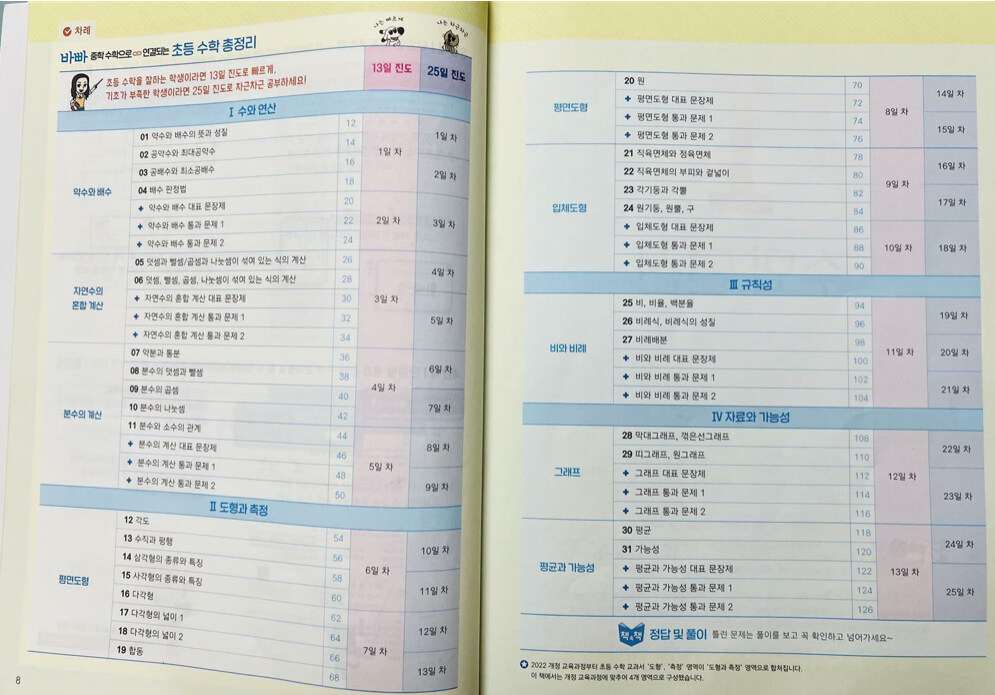 차례
나는 빠르게
나는 차근차근
바빠 중학 수학으로 연결되는 초등 수학 총정리
초등 수학을 잘하는 학생이라면 13일 진도로 빠르게,
기초가 부족한 학생이라면 25일 진도로 차근차근 공부하세요!
13일 진도 25일 진도
Ⅰ 수와 연산
약수와 배수
01 약수와 배수의 뜻과 성질 12
02 공약수와 최대공약수 14
03 공배수와 최소공배수 16
04 배수 판정법 18
+ 약수와 배수 대표 문장제 20
+ 약수와 배수 통과 문제 1 22
+ 약수와 배수 통과 문제 2 24
자연수의
혼합 계산
05 덧셈과 뺄셈/곱셈과 나눗셈이 섞여 있는 식의 계산 26
06 덧셈, 뺄셈, 곱셈, 나눗셈이 섞여 있는 식의 계산 28
+ 자연수의 혼합 계산 대표 문장제 30
+ 자연수의 혼합 계산 통과 문제 1 32
+ 자연수의 혼합 계산 통과 문제 2 34
분수의 계산
07 약분과 통분 36
08 분수의 덧셈과 뺄셈 38
09 분수의 곱셈 40
10 분수의 나눗셈 42
11 분수와 소수의 관계 44
+ 분수의 계산 대표 문장제 46
+ 분수의 계산 통과 문제 1 48
+ 분수의 계산 통과 문제 2 50
1일 차
2일 차
3일 차
4일 차
5일 차
1일 차
2일 차
3일 차
4일 차
5일 차
6일 차
7일 차
8일 차
9일 차
Ⅱ 도형과 측정
평면도형
12 각도 54
13 수직과 평행 56
14 삼각형의 종류와 특징 58
15 사각형의 종류와 특징 60
16 다각형 62
17 다각형의 넓이 1 64
18 다각형의 넓이 2 66
19 합동 68
6일 차
7일 차
10일 차
11일 차
12일 차
13일 차
8
평면도형
20 원 70
+ 평면도형 대표 문장제 72
+ 평면도형 통과 문제 1 74
+ 평면도형 통과 문제 2 76
입체도형
21 직육면체와 정육면체 78
22 직육면체의 부피와 겉넓이 80
23 각기둥과 각뿔 82
24 원기둥, 원뿔, 구 84
+ 입체도형 대표 문장제 86
+ 입체도형 통과 문제 1 88
+ 입체도형 통과 문제 2 90
8일 차
9일 차
10일 차
14일 차
15일 차
16일 차
17일 차
18일 차
Ⅲ 규칙성
비와 비례
25 비, 비율, 백분율 94
26 비례식, 비례식의 성질 96
27 비례배분 98
+ 비와 비례 대표 문장제 100
+ 비와 비례 통과 문제 1 102
+ 비와 비례 통과 문제 2 104
11일 차
19일 차
20일 차
21일 차
Ⅳ 자료와 가능성
그래프
28 막대그래프, 꺾은선그래프 108
29 띠그래프, 원그래프 110
+ 그래프 대표 문장제 112
+ 그래프 통과 문제 1 114
+ 그래프 통과 문제 2 116
평균과 가능성
30 평균 118
31 가능성 120
+ 평균과 가능성 대표 문장제 122
+ 평균과 가능성 통과 문제 1 124
+ 평균과 가능성 통과 문제 2 126
12일 차
13일 차
22일 차
23일 차
24일 차
25일 차
책 속 책 정답 및 풀이 틀린 문제는 풀이를 보고 꼭 확인하고 넘어가세요~
2022 개정 교육과정부터 초등 수학 교과서 '도형', '측정' 영역이 '도형과 측정' 영역으로 합쳐집니다.
이 책에서는 개정 교육과정에 맞추어 4개 영역으로 구성했습니다.